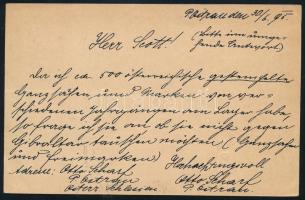 Poitrau den 30/6. 95
(Bitte um umge-
hende Antwort)
Herr Scott!
Da ich ca. 500 österreichische gestempelte
Ganzsachen und Marken von ver-
schiedenen Jahrgängen am Lager habe,
so frage ich sie an ob sie mir gegen
Gibraltar tauschen möchten (Ganzsachen
und Freimarken) Hochachtungsvoll
Adresse: Otto Scharf Otto Scharf
Poitrau Poitrau
Österr. Schlesien.